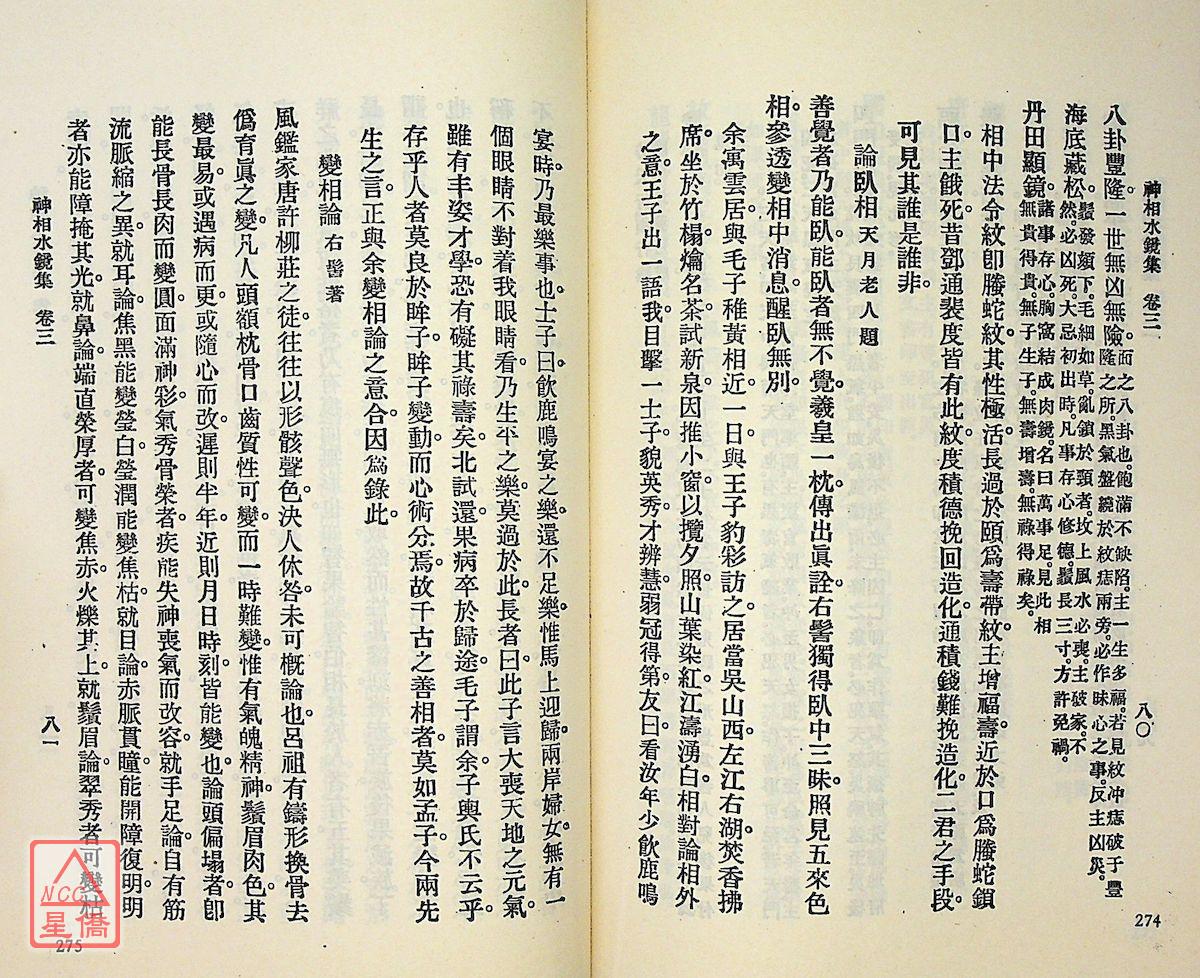 神相水鏡集　卷三　八〇
八卦豐隆一世無凶無險。面之八卦也。飽滿不缺陷。主一生多福。若見紋冲痣破于豐
隆之所。黑氣盤繞於紋痣兩旁。必作昧心之事。反主凶災。
海底藏松。鬚發頦下。毛細如草亂鎖於頸者。坟上風水必喪。主破家。不
然。必凶死。大忌初出時。凡事存心修德。鬚長三寸。方許免禍。
丹田顯鏡。諸事存心。胸窩結成肉鏡。名曰萬事足。見此相
無貴得貴。無子生子。無壽增壽。無祿得祿矣。
相中法令紋卽螣蛇紋。其性極活。長過於頤爲壽帶紋。主增福壽。近於口爲螣蛇鎖
口。主餓死。昔鄧通裴度皆有此紋。度積德挽回造化。通積錢難挽造化。二君之手段。
可見其誰是誰非。
論臥相　天月老人題
善覺者乃能臥。能臥者無不覺。羲皇一枕。傳出眞詮。右髻獨得臥中三昧。照見五來色
相。參透變相中消息。醒臥無別。
余寓雲居。與毛子稚黃相近。一日與王子豹彩訪之。居當吳山西。左江右湖。焚香拂
席。坐於竹榻。爚名茶。試新泉。因推小窗。以攬夕照。山葉染紅。江濤湧白。相對論相外
之意。王子出一語。我目擊一士子。貌英秀。才辨慧。弱冠得第。友曰。看汝年少飲鹿鳴
宴時。乃最樂事也。士子曰。飲鹿鳴宴之樂。還不足樂。惟馬上迎歸。兩岸婦女。無有一
個眼睛不對着我眼睛看。乃生平之樂。莫過於此。長者曰。此子言大喪天地之元氣。
雖有丰姿才學。恐有礙其祿壽矣。北試還。果病卒於歸途。毛子謂余。子輿氏不云乎。
存乎人者。莫良於眸子。眸子變動。而心術分焉。故千古之善相者。莫如孟子。今兩先
生之言。正與余變相論之意合。因爲錄此。
變相論　右髻著
風鑑家唐許柳莊之徒。往往以形骸聲色。決人休咎。未可概論也。呂祖有鑄形換骨。去
僞育眞之變。凡人頭額枕骨口齒。質性可變。而一時難變。惟有氣魄精神。鬚眉肉色。其
變最易。或遇病而更。或隨心而改。遲則半年。近則月日時刻。皆能變也。論頭偏塌者。卽
能長骨長肉而變圓。面滿神彩。氣秀骨榮者。疾能失神喪氣而改容。就手足論。自有筋
流脈縮之異。就耳論。焦黑能變瑩白。瑩潤能變焦枯。就目論。赤脈貫瞳。能開障復明。明
者亦能障掩其光。就鼻論。端直榮厚者。可變焦赤火爍其上。就鬚眉論。翠秀者可變枯
神相水鏡集　卷三　八一
274
275
NCC
星僑